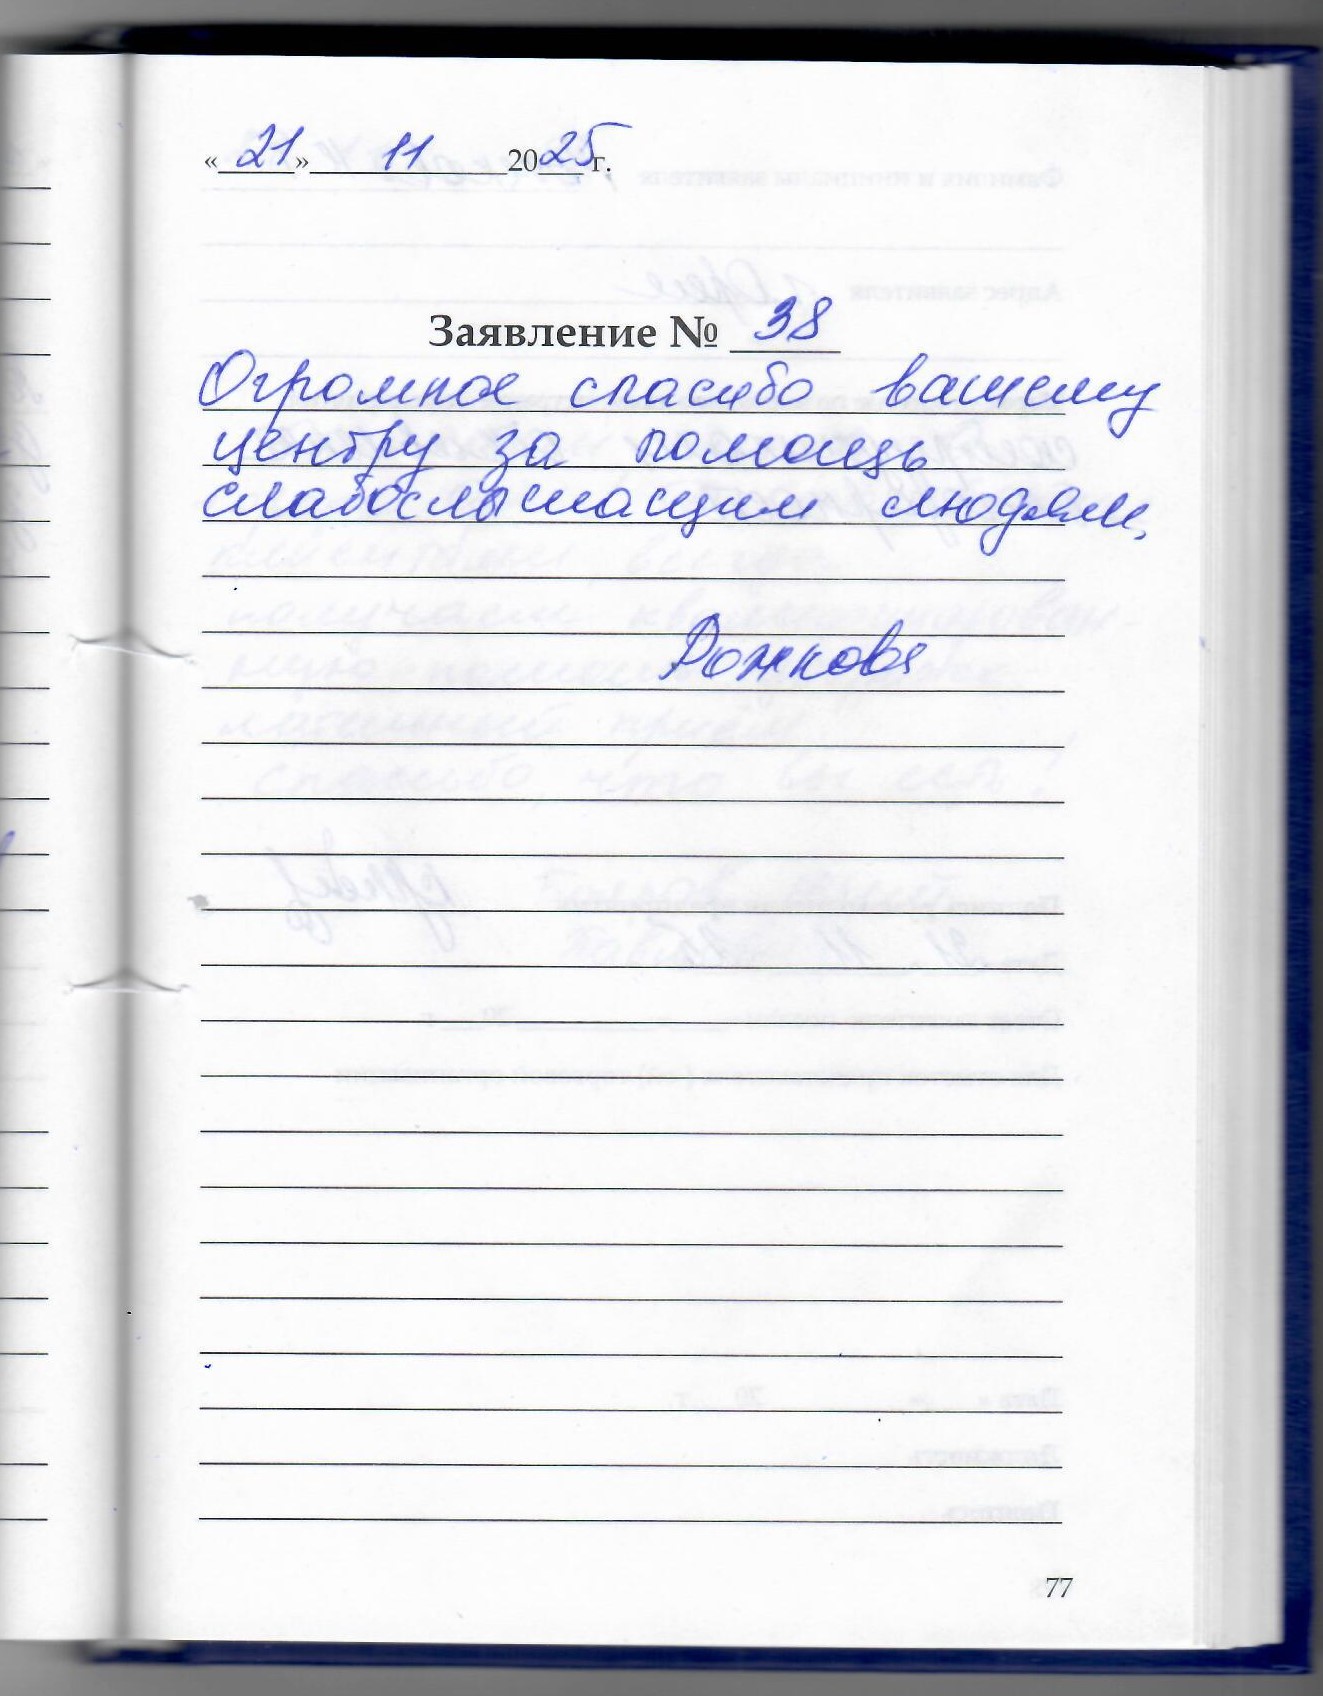 «21» 11 2025 г.
Заявление № 38
Огромное спасибо вашему
центру за помощь
слабослышащим людям.
Рожкова
77